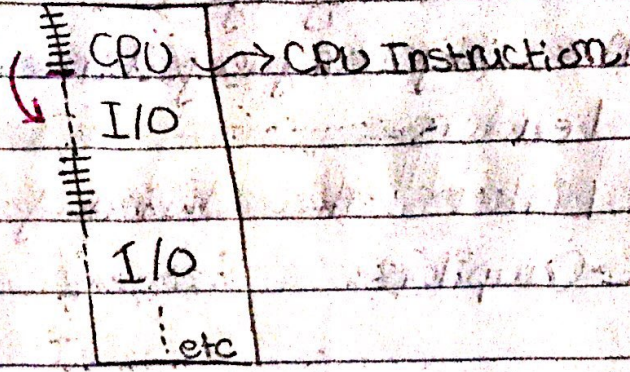 CPU → CPU Instruction
I/O
I/O
etc